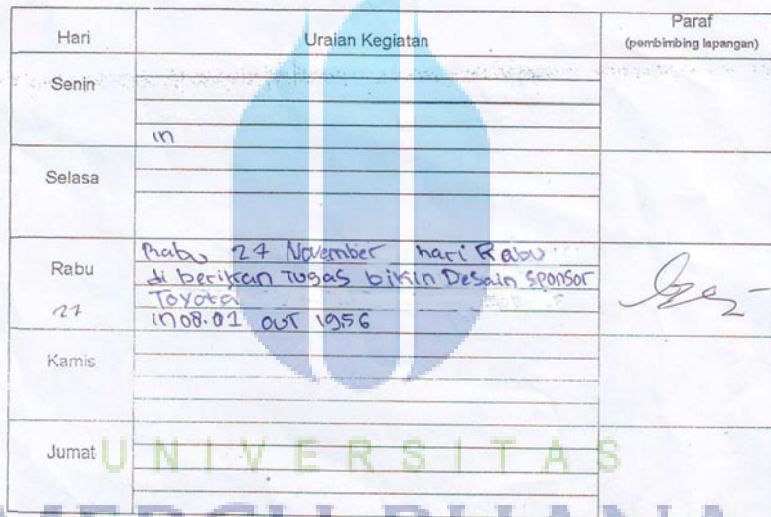 Hari
Uraian Kegiatan
Paraf
(pembimbing lapangan)
Senin
in
Selasa
Rabu
27
Rabu 27 November hari Rabu
di berikan Tugas bikin Desain Sponsor
Toyota
in 08.01 OUT 1956
Kamis
Jumat
UNIVERSITAS
MERCU BUANA